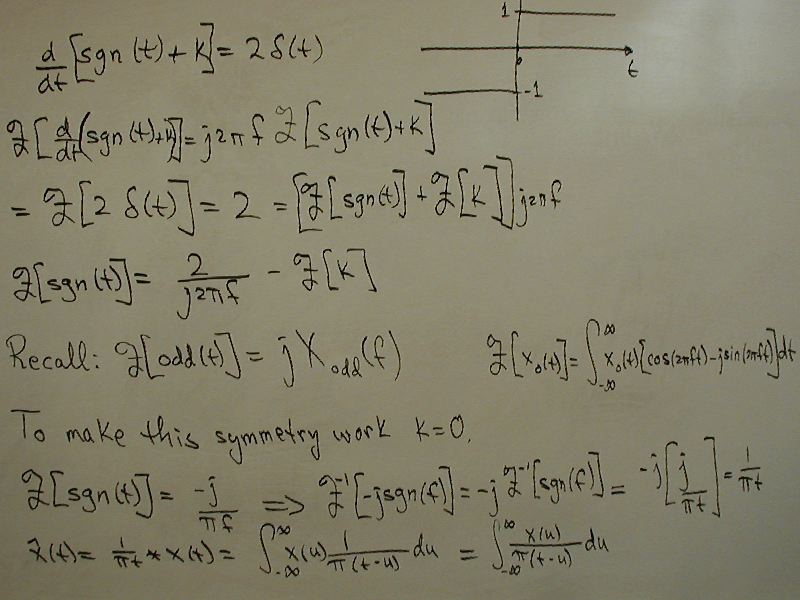 1
d/dt [sgn(t)+K] = 2 δ(t)
t
-1
ℱ[d/dt(sgn(t)+K)] = j2πf ℱ[sgn(t)+K]
= ℱ[2 δ(t)] = 2 = [ℱ[sgn(t)] + ℱ[K]] j2πf
ℱ[sgn(t)] = 2/j2πf - ℱ[K]
Recall: ℱ[odd(t)] = j X_odd(f) ℱ[x_o(t)] = ∫_-∞^∞ x_o(t)[cos(2πft)-jsin(2πft)]dt
To make this symmetry work K=0.
ℱ[sgn(t)] = -j/πf ⟹ ℱ^-1[-jsgn(f)] = -j ℱ^-1[sgn(f)] = -j[j/πt] = 1/πt
x̂(t) = 1/πt * x(t) = ∫_-∞^∞ x(u) 1/π(t-u) du = ∫_-∞^∞ x(u)/π(t-u) du